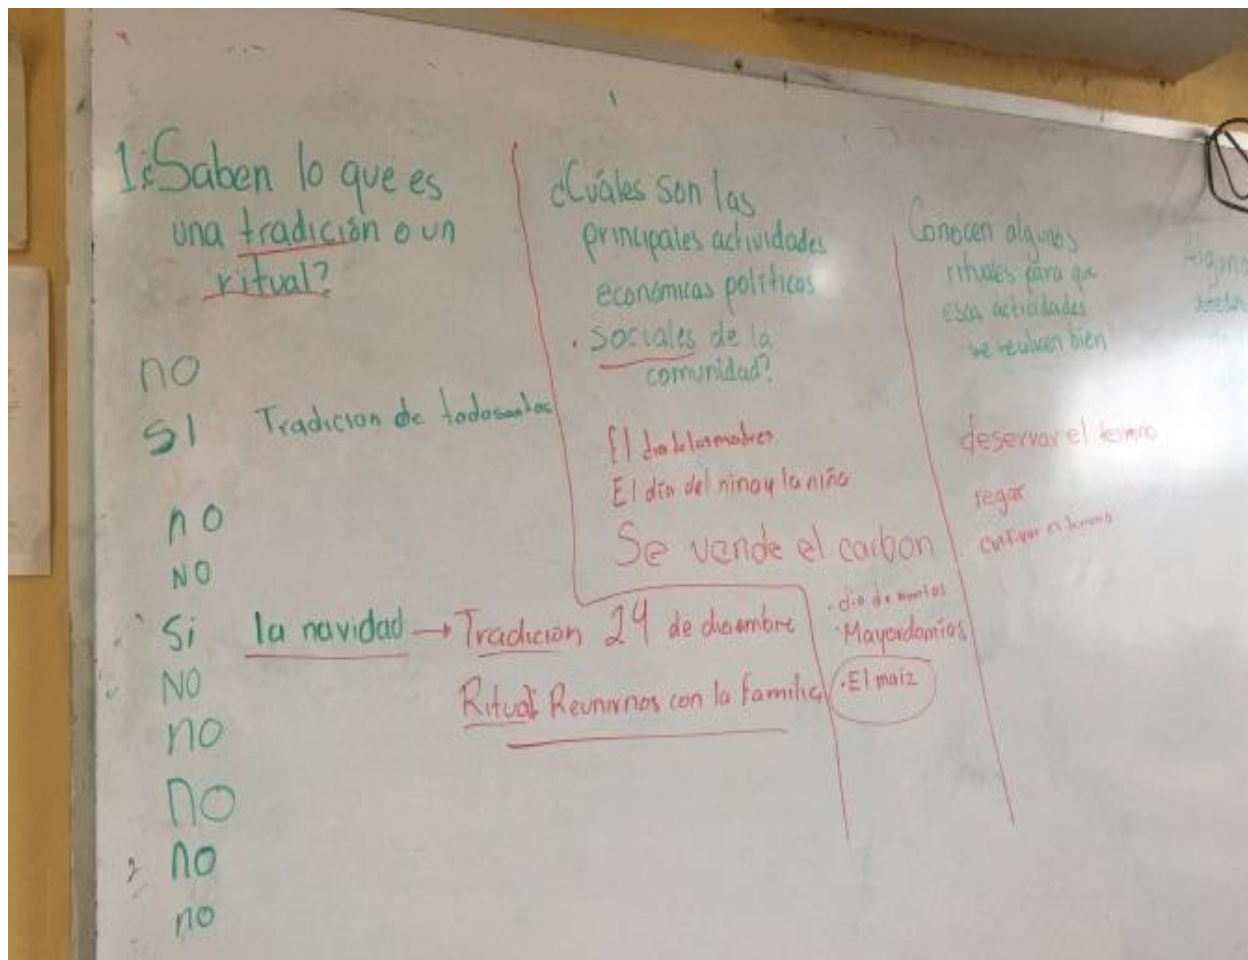 1. ¿Saben lo que es
una tradición o un
ritual?
no
SI Tradicion de todosantos
no
NO
Si la navidad → Tradicion 24 de diciembre
Ritual: Reunirnos con la familia
NO
no
no
no
no
¿Cuáles son las
principales actividades
económicas políticas
sociales de la
comunidad?
El dia de las madres
El día del niño y la niña
Se vende el carbon
. dia de muertos
. Mayordomías
. El maiz
Conocen algunos
rituales para que
esas actividades
se realicen bien
deservar el terreno
regar
el